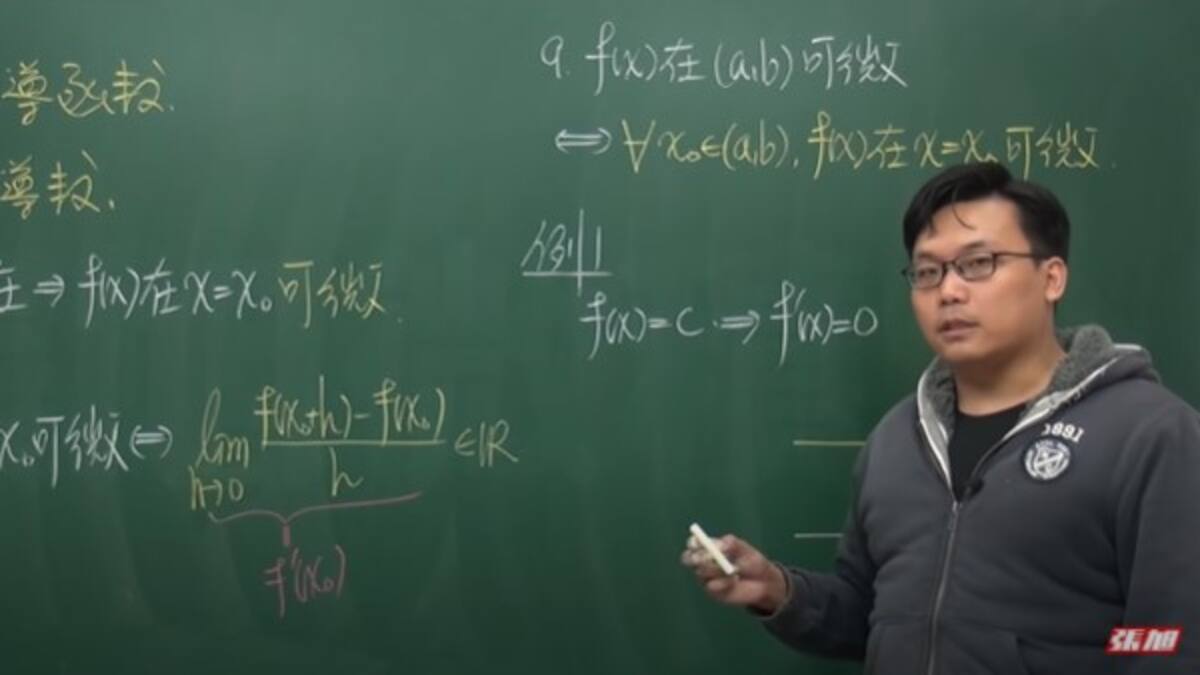 導函數.
導數.
在 ⇒ f(x)在 x=x₀ 可微.
x₀可微 ⇔ lim h→0 f(x₀+h)-f(x₀) / h ∈ℝ
f'(x₀)
9. f(x)在 (a,b) 可微
⇔ ∀ x₀∈(a,b), f(x)在 x=x₀ 可微.
例 1
f(x)=C ⇒ f'(x)=0
1891
張旭